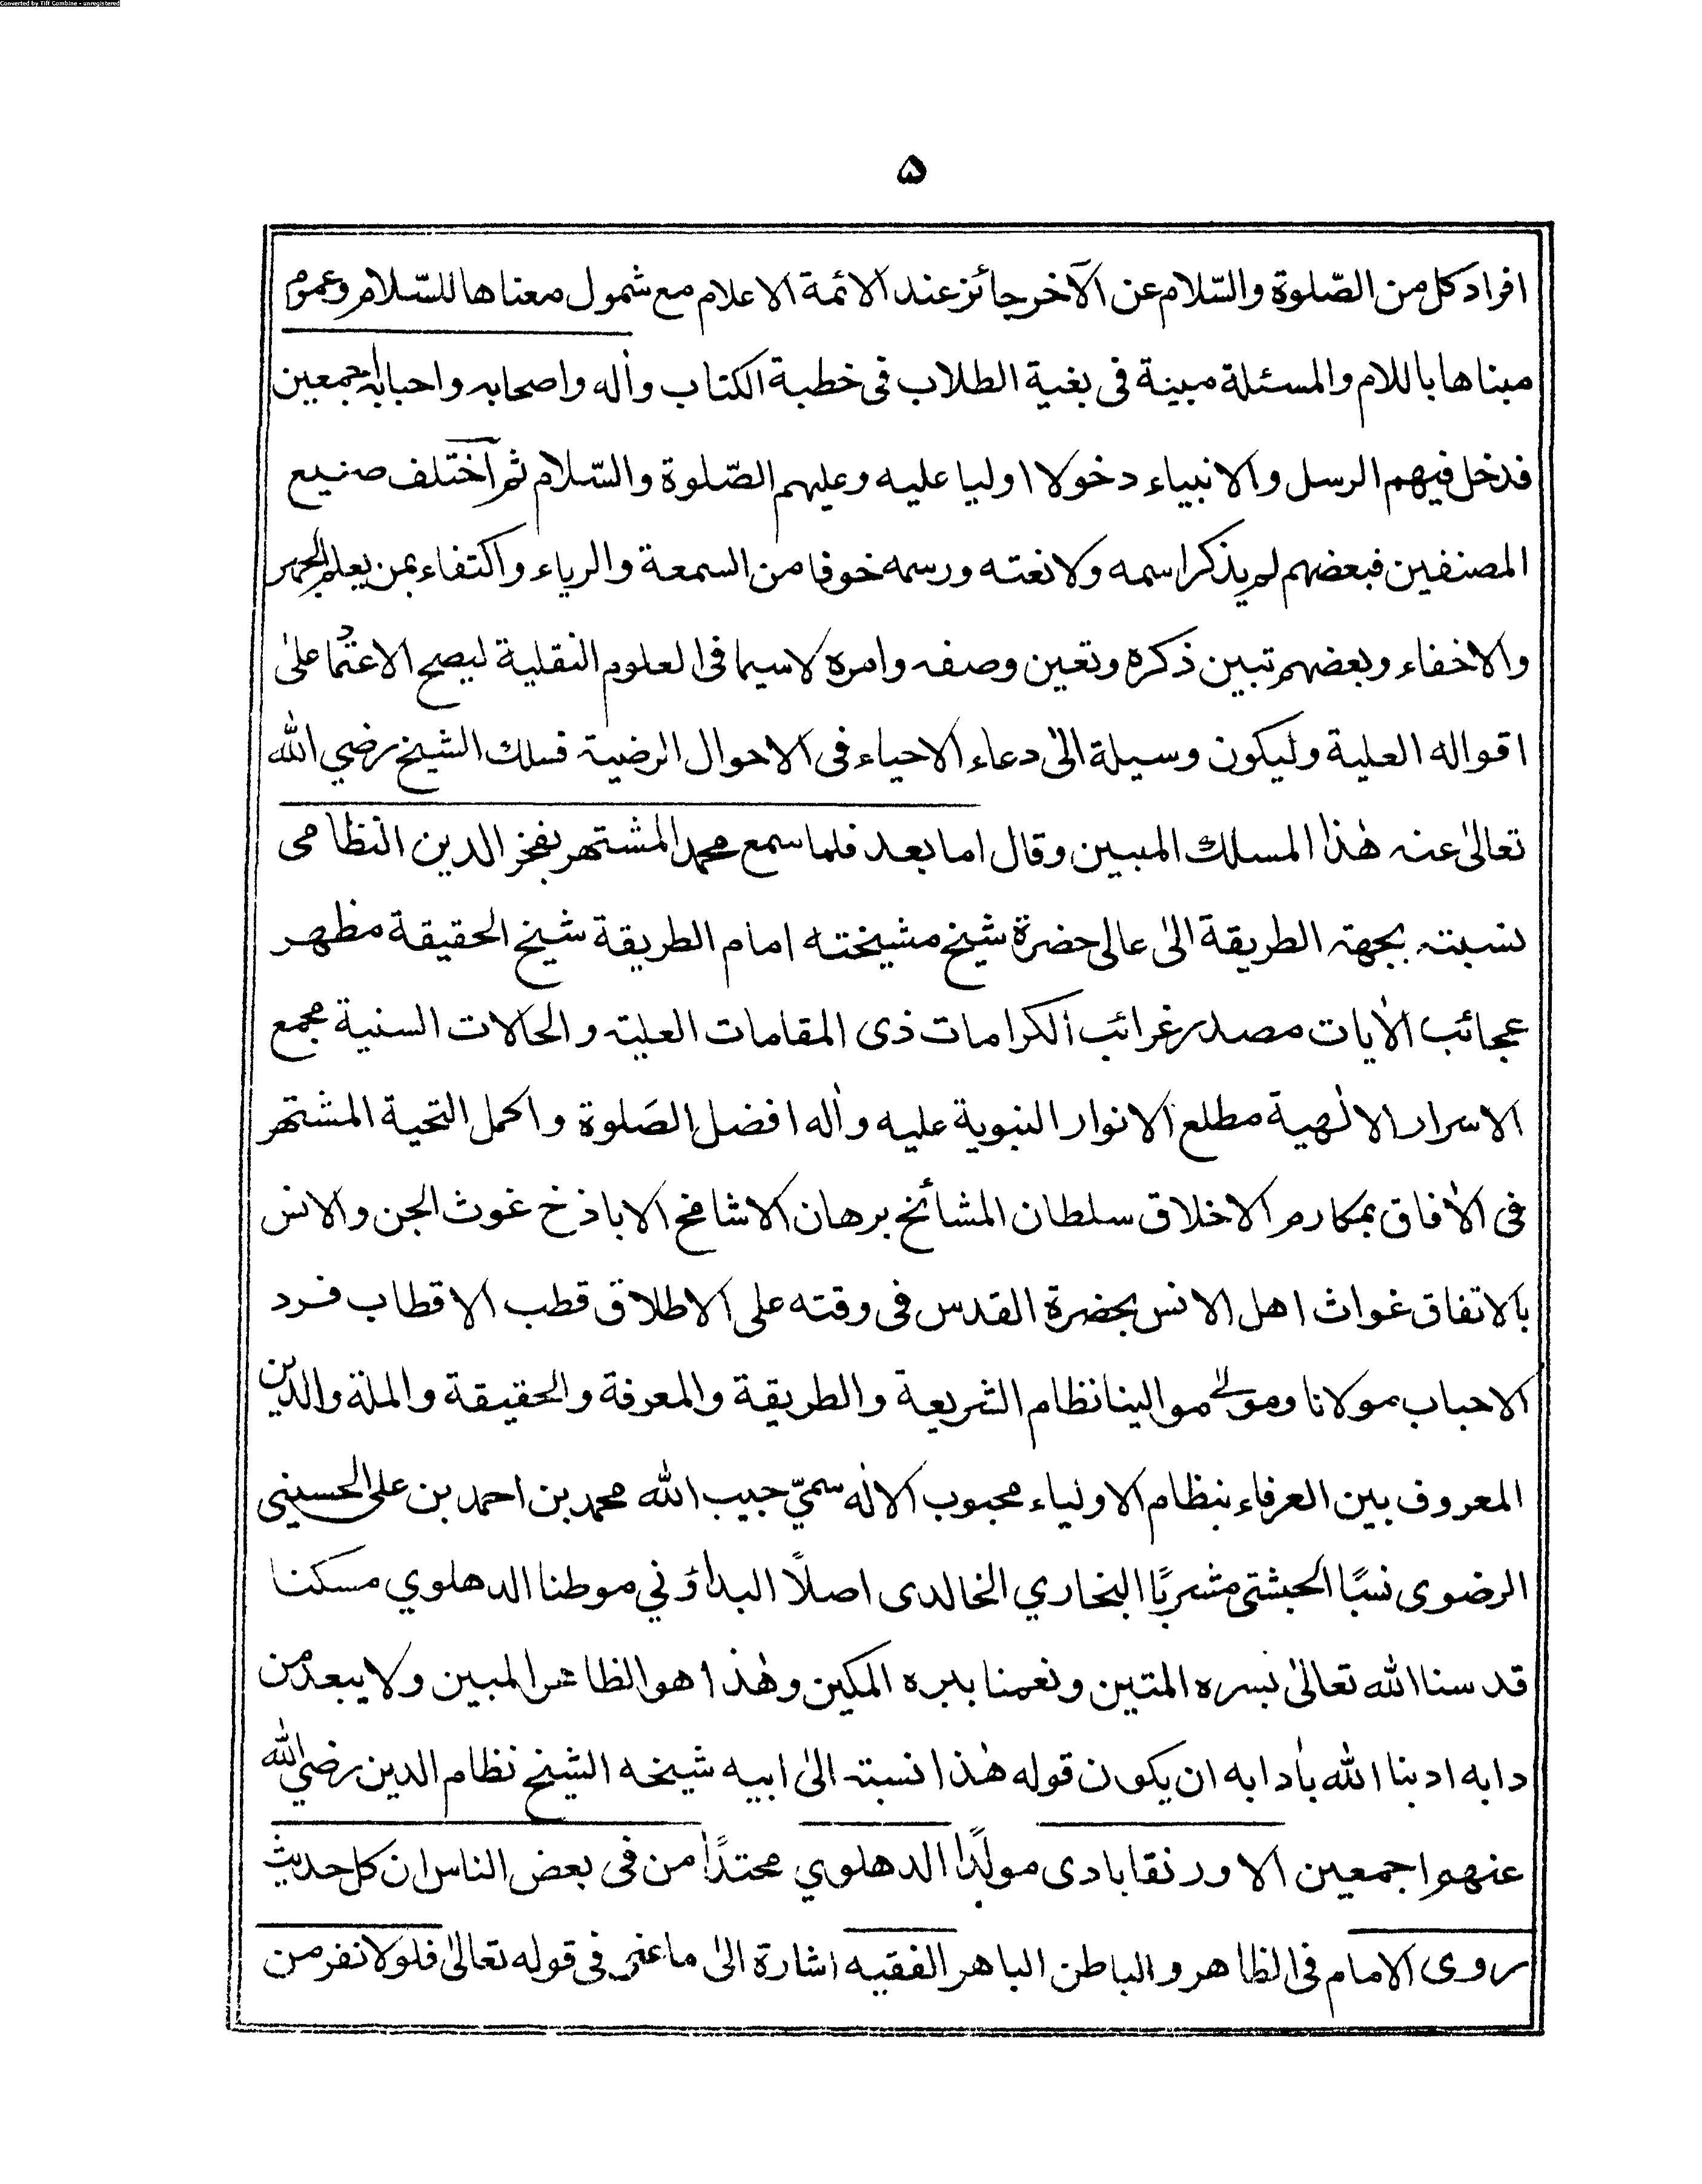 Converted by Tiff Combine - unregistered
۵
افراد كل من الصّلوة والسّلام عن الآخر جائز عند الائمة الاعلام مع شمول معناها للسّلام وعموم
مبناها باللام والمسئلة مبينة فى بغية الطلاب فى خطبة الكتاب واٰله واصحابه واحبابه اجمعين
فدخل فيهم الرسل والانبياء دخولا اوليا عليه وعليهم الصّلوة والسّلام ثم اختلف صنيع
المصنفين فبعضهم لم يذكر اسمه ولا نعته ورسمه خوفا من السمعة والرياء واكتفاء بمن يعلم الجهر
والاخفاء وبعضهم تبين ذكره وتعين وصفه وامره لاسيما فى العلوم النقلية ليصح الاعتماد علىٰ
اقواله العلية وليكون وسيلة الىٰ دعاء الاحياء فى الاحوال الرضية فسلك الشيخ رضي الله
تعالىٰ عنه هٰذا المسلك المبين وقال اما بعد فلما سمع محمد المشتهر بفخر الدين النظامى
نسبته بجهة الطريقة الىٰ عالى حضرة شيخ مشيخته امام الطريقة شيخ الحقيقة مظهر
عجائب الاٰيات مصدر غرائب الكرامات ذى المقامات العلية والحالات السنية مجمع
الاسرار الالٰهية مطلع الانوار النبوية عليه واٰله افضل الصَلوة واكمل التحية المشتهر
فى الاٰفاق بمكارم الاخلاق سلطان المشائخ برهان الاشامخ الاباذخ غوث الجن والانس
بالاتفاق غواث اهل الانس بحضرة القدس فى وقته على الاطلاق قطب الاقطاب فرد
الاحباب مولانا ومولىٰ موالينا نظام الشريعة والطريقة والمعرفة والحقيقة والملة والدين
المعروف بين العرفاء بنظام الاولياء محبوب الالٰه سميّ حبيب الله محمد بن احمد بن على الحسينى
الرضوى نسبًا الچشتى مشربًا البخاري الخالدى اصلاً البداؤني موطنا الدهلوي مسكنا
قدسنا الله تعالىٰ بسره المتين ونعمنا ببره المكين وهٰذا هو الظاهر المبين ولا يبعد من
دابه ادبنا الله باٰدابه ان يكون قوله هٰذا نسبة الىٰ ابيه شيخه الشيخ نظام الدين رضي الله
عنهم اجمعين الاورنقابادى مولدًا الدهلوي محتدًا من فى بعض الناس ان كل حديث
روى الامام فى الظاهر والباطن الباهر الفقيه اشارة الىٰ ما عنى فى قوله تعالىٰ فلولا نفر من